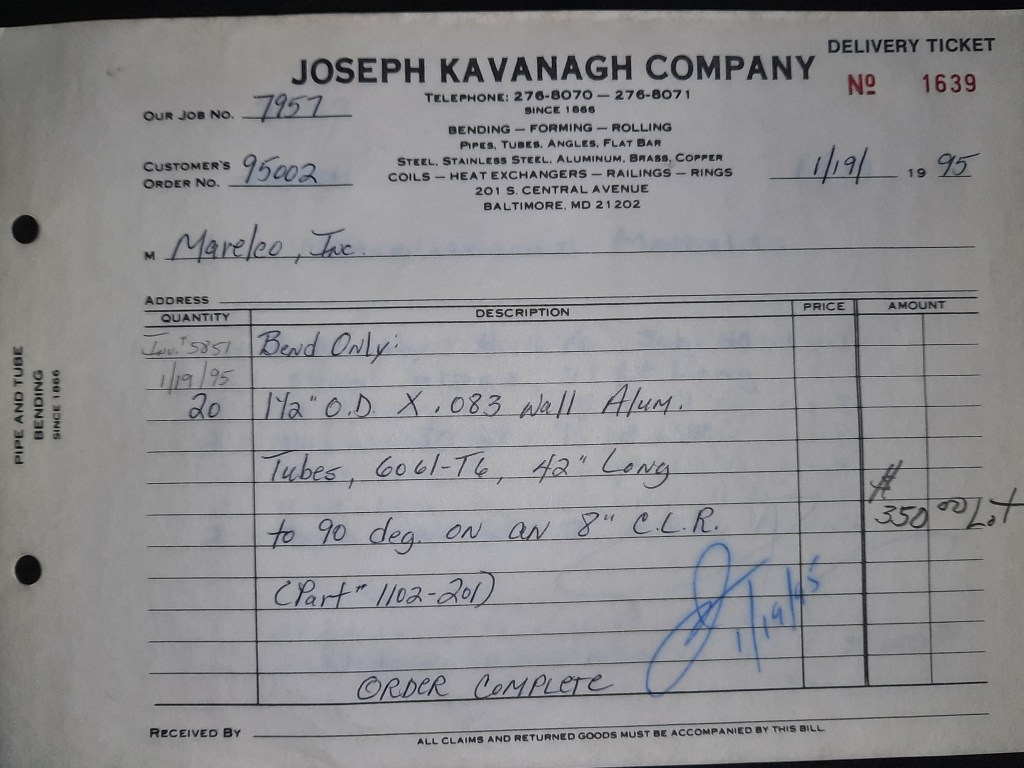 DELIVERY TICKET
JOSEPH KAVANAGH COMPANY
Nº 1639
TELEPHONE: 276-8070 — 276-8071
SINCE 1866
OUR JOB NO. 7957
BENDING — FORMING — ROLLING
PIPES, TUBES, ANGLES, FLAT BAR
STEEL, STAINLESS STEEL, ALUMINUM, BRASS, COPPER
CUSTOMER'S
ORDER NO. 95002
COILS — HEAT EXCHANGERS — RAILINGS — RINGS
1/19/ 19 95
201 S. CENTRAL AVENUE
BALTIMORE, MD 21202
M Marelco, Inc.
ADDRESS
QUANTITY DESCRIPTION PRICE AMOUNT
Inv. # 5851 Bend Only:
1/19/95
20 1 1/2" O.D. X .083 Wall Alum.
Tubes, 6061-T6, 42" Long
to 90 deg. ON AN 8" C.L.R.
$ 350 00 Lot
(Part # 1102-201)
1/19/95
ORDER COMPLETE
RECEIVED BY
ALL CLAIMS AND RETURNED GOODS MUST BE ACCOMPANIED BY THIS BILL
PIPE AND TUBE
BENDING
SINCE 1866